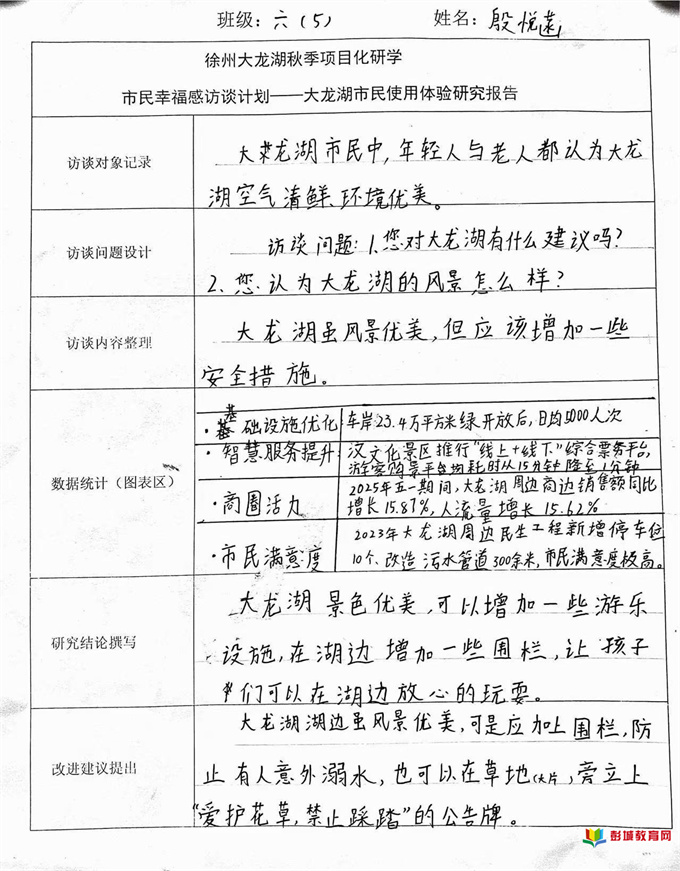 班级：六(5) 姓名：殷悦
徐州大龙湖秋季项目化研学
市民幸福感访谈计划——大龙湖市民使用体验研究报告
访谈对象记录
大龙湖市民中,年轻人与老人都认为大龙
湖空气清鲜、环境优美。
访谈问题设计
访谈问题：1.您对大龙湖有什么建议吗?
2.您认为大龙湖的风景怎么样?
访谈内容整理
大龙湖虽风景优美,但应该增加一些
安全措施。
数据统计（图表区）
·基础设施优化
车岸23.4万平方米绿开放后,日均5000人次
·智慧服务提升:
汉文化景区推行“线上+线下”综合票务平台,
游客购票平台均耗时从15分钟降至1分钟
·商圈活力
2025年五一期间,大龙湖周边商边销售额同比
增长15.87%,人流量增长15.62%
·市民满意度
2023年大龙湖周边民生工程新增停车位
10个、改造污水管道300余米,市民满意度极高。
研究结论撰写
大龙湖景色优美,可以增加一些游乐
设施,在湖边增加一些围栏,让孩子
们可以在湖边放心的玩耍。
改进建议提出
大龙湖湖边虽风景优美,可是应加上围栏,防
止有人意外溺水,也可以在草地(大片),旁立上
“爱护花草,禁止踩踏”的公告牌。
彭城教育网